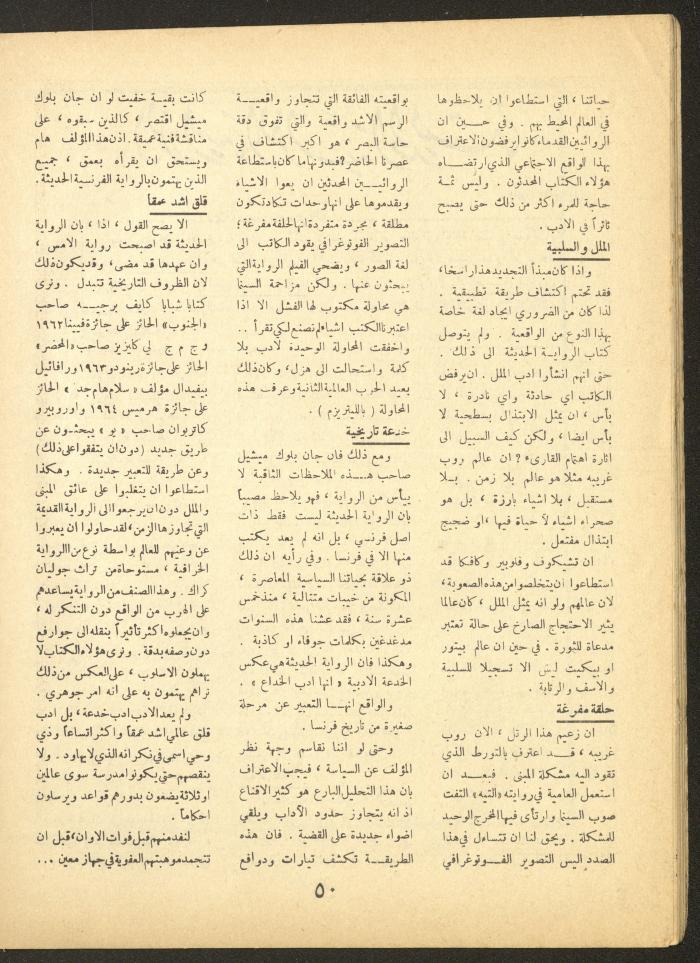 حياتنا ، التي استطاعوا ان يلاحظوها
في العالم المحيط بهم . وفي حــين ان
الروائيين القدماء كانوا يرفضون الاعتراف
بهذا الواقع الاجتماعي الذي ارتضــاه
هؤلاء الكتّاب المحدثون . وليس ثمــة
حاجة للمرء اكثر من ذلك حتى يصبح
ثائراً في الادب .
الملل والسلبية
واذا كان مبدأ التجديد هذا راسخا ،
فقد تحتم اكتشاف طريقة تطبيقية .
لذا كان من الضروري ايجاد لغة خاصة
بهذا النوع من الواقعية . ولم يتوصل
كتاب الرواية الحديثة الى ذلك .
حتى انهم انشأوا ادب الملل . ان يرفض
الكاتب اي حادثة واي نادرة ، لا
بأس ، ان يمثل الابتذال بسطحية لا
بأس ايضا ، ولكن كيف السبيل الى
اثارة اهتمام القارىء ؟ ان عالم روب
غرييه مثلا هو عالم بلا زمن . بــلا
مستقبل ، بلا اشياء بارزة ، بل هو
صحراء اشياء لا حياة فيها ، او ضجيج
ابتذال مفتعل .
ان تشيكوف وفلوبير وكافكا قد
استطاعوا ان يتخلصوا من هذه الصعوبة ،
لان عالمهم ولو انه يمثل الملل ، كان عالما
يثير الاحتجاج الصارخ على حالة تعتبر
مدعاة للثورة . في حين ان عالم بيتور
او بيكيت ليس الا تسجيلا للسلبية
والاسف والرتابة .
حلقة مفرغة
ان زعيم هذا الرتل ، الان روب
غرييه ، قــد اعترف بالتورط الذي
تقود اليه مشكلة المبنى . فبعــد ان
استعمل العامية في روايته «التيه» التفت
صوب السينما وارتأى فيها المخرج الوحيد
للمشكلة . ويحق لنا ان نتساءل في هذا
الصدد اليس التصوير الفــوتوغرافي
بواقعيته الفائقة التي تتجاوز واقعيــة
الرسم الأشد واقعية والتي تفوق دقة
حاسة البصر ، هو اكبر اكتشاف في
عصرنا الحاضر ؟ فبدونها ما كان باستطاعة
الروائيــين المحدثين ان يعوا الاشياء
ويقدموها على انها وحدات تكاد تكون
مطلقة ، مجردة منفردة انها لحلقة مفرغة ؛
التصوير الفوتوغرافي يقود الكاتب الى
لغة الصور ، ويضحي الفيلم الرواية التي
يبحثون عنها . ولكن مزاحمة السينما
هي محاولة مكتوب لها الفشل الا اذا
اعتبرنا الكتب اشياء لم تصنع لكي تقرأ ..
واخفقت المحاولة الوحيدة لادب بلا
كلمة واستحالت الى هزل ، وكان ذلك
بعيد الحرب العالمية الثانية وعرفت هذه
المحاولة ( بالليتريزم ) .
خدعة تاريخية
ومع ذلك فان جان بلوك ميشيل
صاحب هــذه الملاحظات الثاقبة لا
ييأس من الرواية ، فهو يلاحظ مصيباً
بان الرواية الحديثة ليست فقط ذات
اصل فرنسي ، بل انه لم يعد يكتب
منها الا في فرنسا . وفي رأيه ان ذلك
ذو علاقة بحياتنا السياسية المعاصرة ،
المكونة من خيبات متتالية ، منذ خمس
عشرة سنة ، فقد عشنا هذه السنوات
مدغدغين بكلمات جوفاء او كاذبة .
وهكذا فان الرواية الحديثة هي عكس
الخدعة الادبية « انها ادب الخداع » .
والواقع انهــا التعبير عن مرحلة
صغيرة من تاريخ فرنسا .
وحتى لو اننا نقاسم وجهة نظر
المؤلف عن السياسة ، فيجب الاعتراف
بان هذا التحليل البارع هو كثير الاقناع
اذ انه يتجاوز حدود الآداب ويلقي
اضواء جديدة على القضية . فان هذه
الطريقــة تكشف تيارات ودوافع
كانت بقيــة خفيت لو ان جان بلوك
ميشيل اقتصر ، كالذين سبقوه ، على
مناقشة فنية عميقة . اذن هذا المؤلف هام
ويستحق ان يقرأه بعمق ، جميع
الذين يهتمون بالرواية الفرنسية الحديثة .
قلق اشد عمقاً
الا يصح القول ، اذا ، بان الرواية
الحديثة قد اصبحت رواية الامس ،
وان عهدها قد مضى ، وقد يكون ذلك
لان الظروف التاريخية تتبدل . ونرى
كتابا شبابا كايف برجيــه صاحب
«الجنوب» الحائز على جائزة فيينا ١٩٦٢
و ج م ج لي كليزيز صاحب «المحضر»
الحائز على جائزة رينودو ١٩٦٣ ورافائيل
بيفيدال مؤلف « سلام هام جد » الحائز
على جائزة هرميس ١٩٦٤ واوروبيرو
كاتربوان صاحب « بو » يبحثــون عن
طريق جديد (دون ان يتفقوا على ذلك)
وعن طريقة للتعبير جديدة . وهكذا
استطاعوا ان يتغلبوا على عائق المبنى
والملل دون ان يرجعوا الى الرواية القديمة
التي تجاوزها الزمن ، لقد حاولوا ان يعبروا
عن وعيهم للعالم بواسطة نوع من الرواية
الخرافية ، مستوحاة من تراث جوليان
كراك . وهذا الصنف من الرواية يساعدهم
على الهرب من الواقع دون التنكر له ،
وان يجعلوه اكثر تأثيراً بنقله الى جو ارفع
دون وصفه بدقة . ونرى هؤلاء الكتاب لا
يهملون الاسلوب ، على العكس من ذلك
نراهم يهتمون به على انه امر جوهري .
ولم يعد الادب ادب خدعة ، بل ادب
قلق عالمي اشد عمقاً واكثر اتساعاً وذي
وحي اسمى في نكرانه الذي لا يهاود . ولا
ينقصهم حتى يكونوا مدرسة سوى عالمين
او ثلاثة يضعون بدورهم قواعد ويرسلون
احكاماً .
لنقدمنهم قبل فوات الاوان ، قبل ان
تتجمد موهبتهم العفوية في جهاز معين ...
٥٠